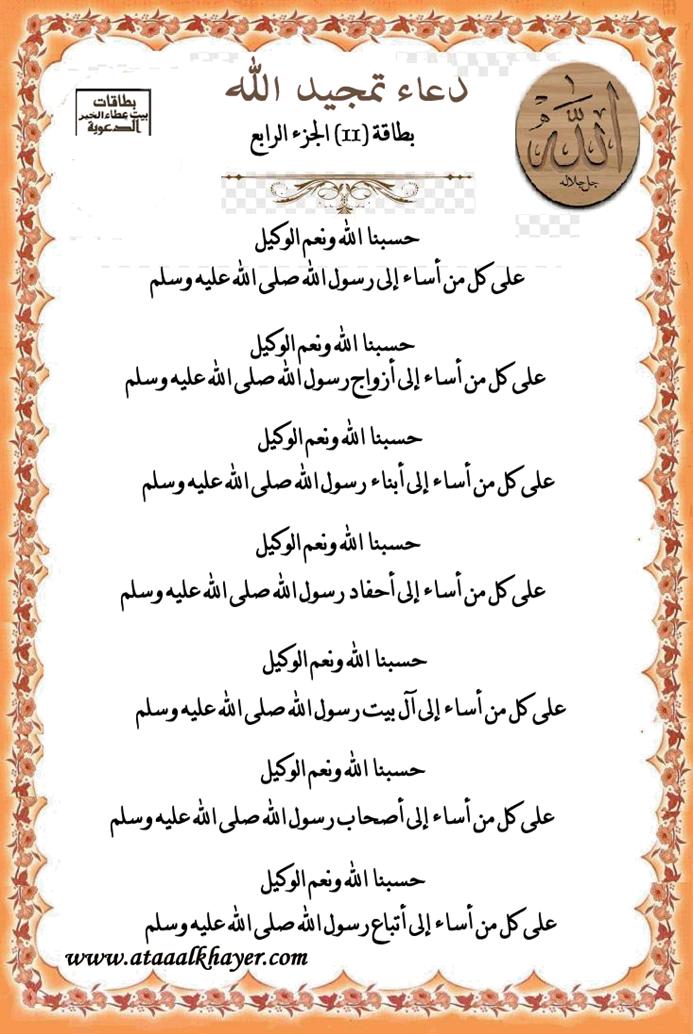 دعاء تمجيد الله
بطاقة (11) الجزء الرابع
بطاقات
بيت عطاء الخير
الدعوية
الله
جل جلاله
حسبنا الله ونعم الوكيل
على كل من أساء إلى رسول الله صلى الله عليه وسلم
حسبنا الله ونعم الوكيل
على كل من أساء إلى أزواج رسول الله صلى الله عليه وسلم
حسبنا الله ونعم الوكيل
على كل من أساء إلى أبناء رسول الله صلى الله عليه وسلم
حسبنا الله ونعم الوكيل
على كل من أساء إلى أحفاد رسول الله صلى الله عليه وسلم
حسبنا الله ونعم الوكيل
على كل من أساء إلى آل بيت رسول الله صلى الله عليه وسلم
حسبنا الله ونعم الوكيل
على كل من أساء إلى أصحاب رسول الله صلى الله عليه وسلم
حسبنا الله ونعم الوكيل
على كل من أساء إلى أتباع رسول الله صلى الله عليه وسلم
www.ataaalkhayer.com